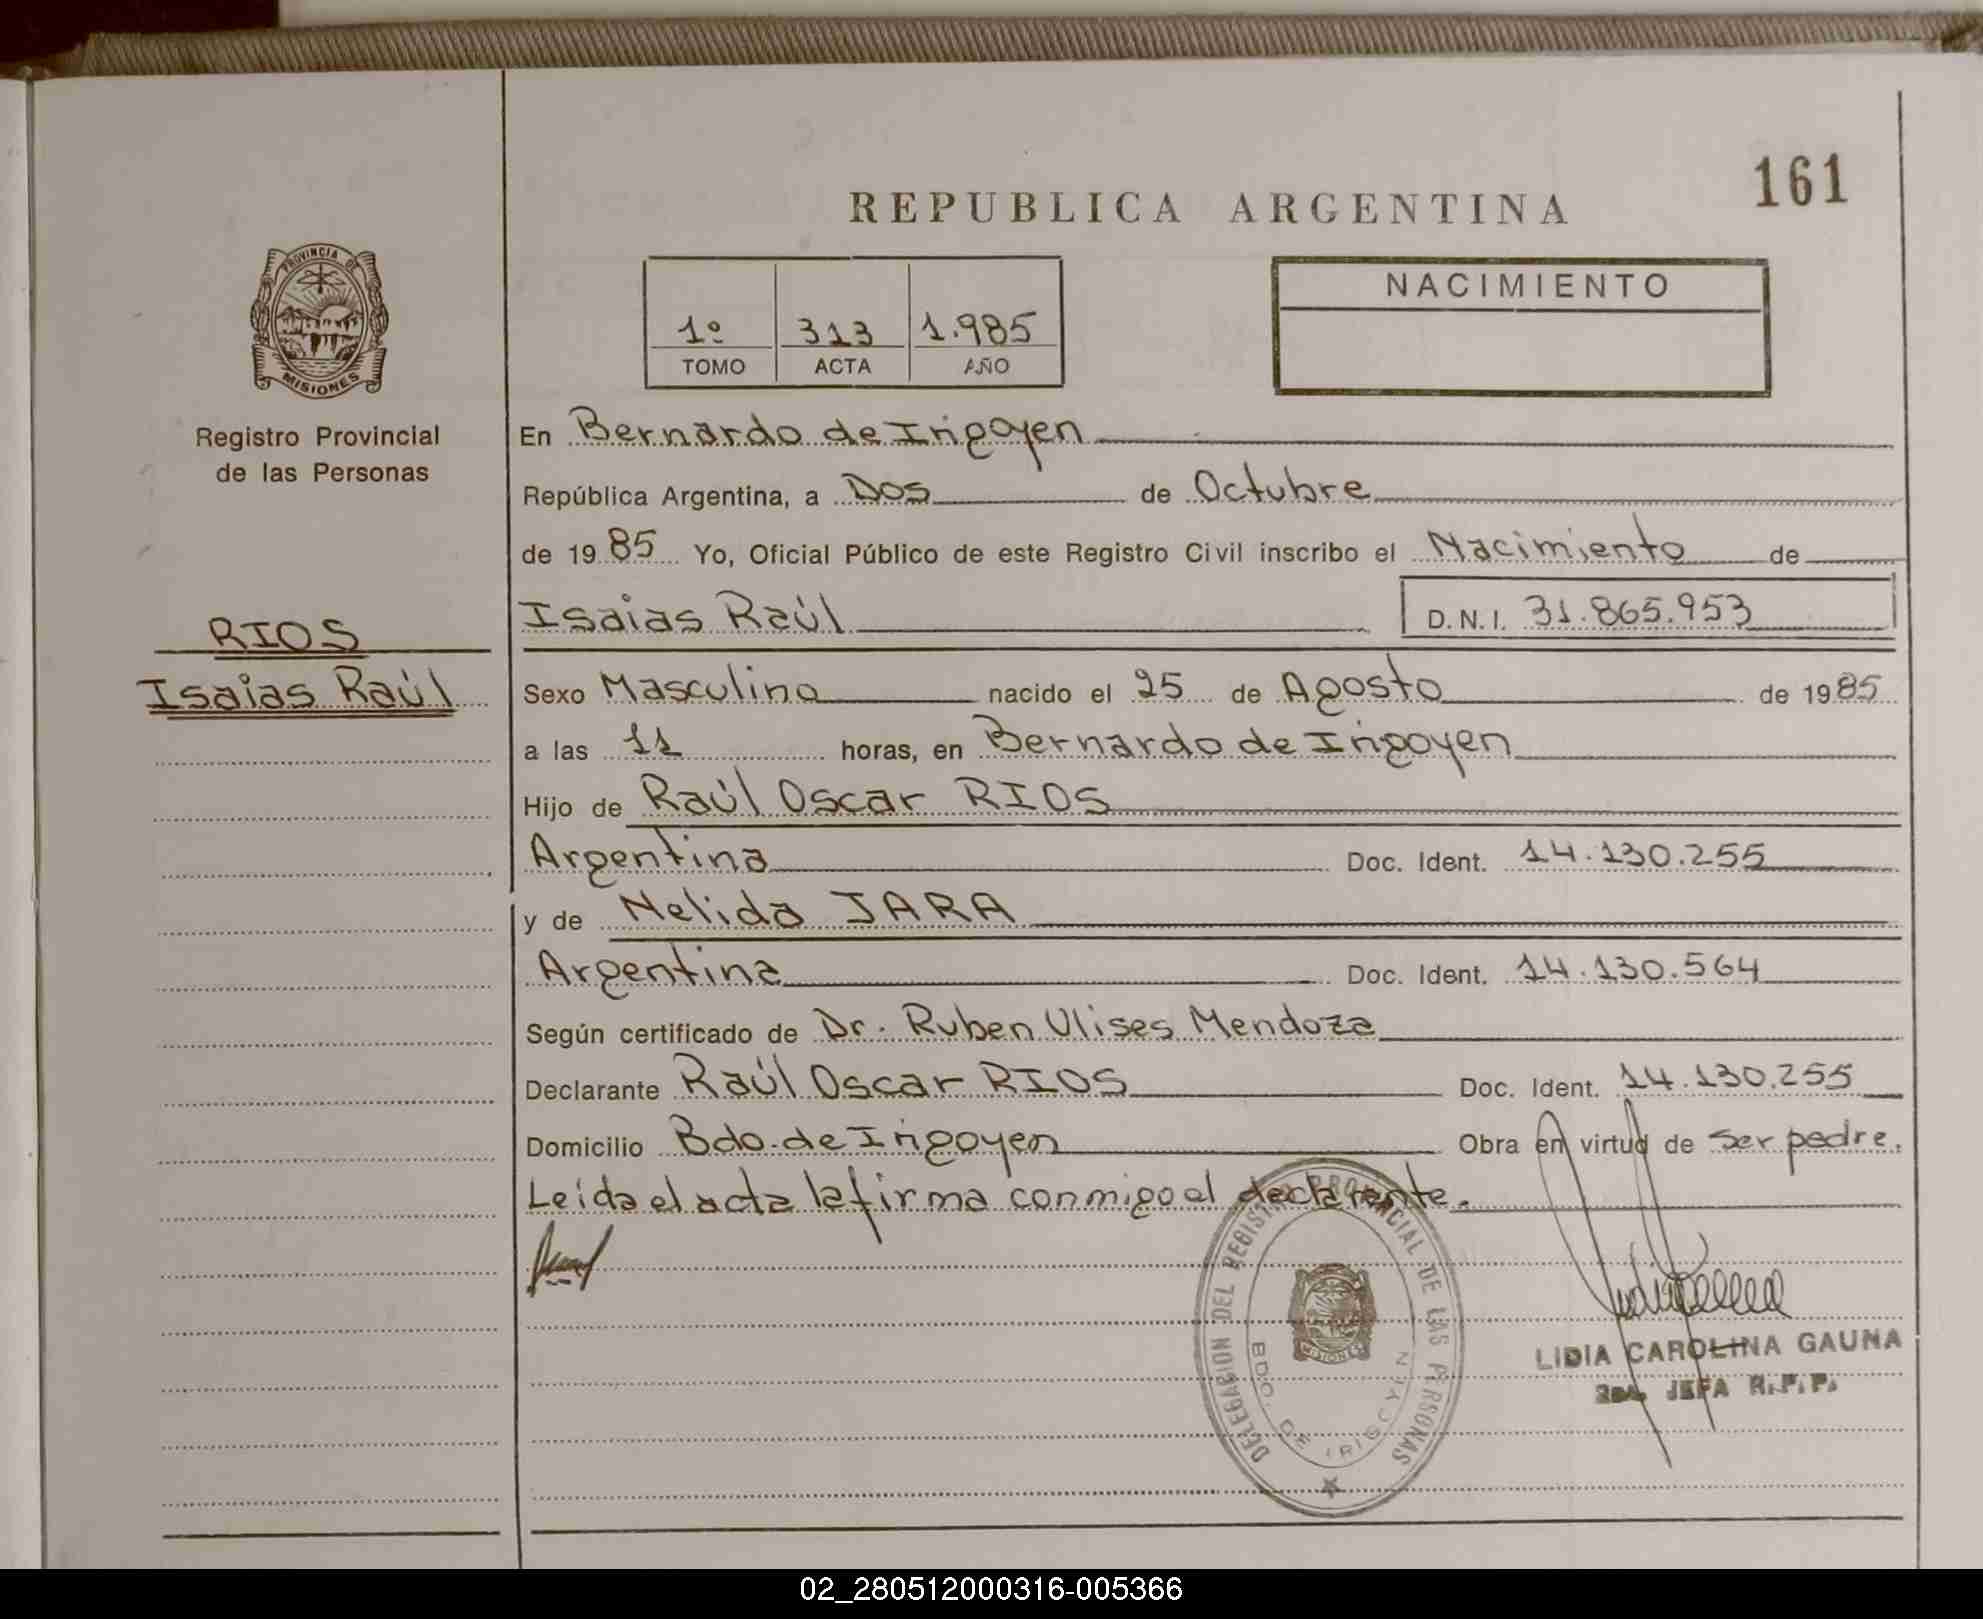 161
REPUBLICA ARGENTINA
PROVINCIA DE
MISIONES
Registro Provincial
de las Personas
RIOS
Isaias Raúl
1º 313 1.985
TOMO ACTA AÑO
NACIMIENTO
En Bernardo de Irigoyen
República Argentina, a Dos de Octubre
de 19 85 Yo, Oficial Público de este Registro Civil inscribo el Nacimiento de
Isaias Raúl D.N.I. 31.865.953
Sexo Masculino nacido el 25 de Agosto de 19 85
a las 11 horas, en Bernardo de Irigoyen
Hijo de Raúl Oscar RIOS
Argentina Doc. Ident. 14.130.255
y de Nelida JARA
Argentina Doc. Ident. 14.130.564
Según certificado de Dr. Ruben Ulises Mendoza
Declarante Raúl Oscar RIOS Doc. Ident. 14.130.255
Domicilio Bdo. de Irigoyen Obra en virtud de ser padre.
Leida el acta la firma conmigo el declarante.
DELEGACION DEL REGISTRO PROVINCIAL DE LAS PERSONAS
MISIONES
BDO. DE IRIGOYEN
LIDIA CAROLINA GAUNA
2da. JEFA R.P.P.
02_280512000316-005366